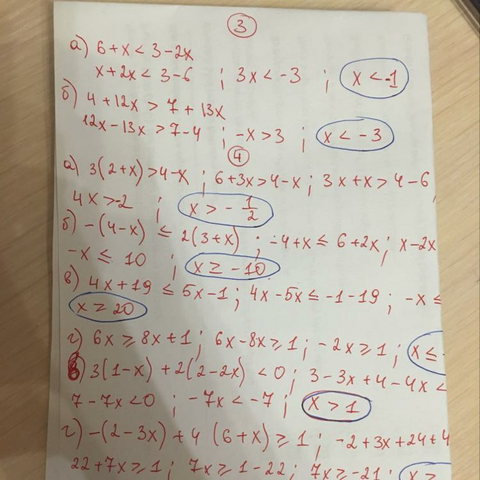 3
а) 6+x < 3-2x
x+2x < 3-6 ; 3x < -3 ; x < -1
б) 4+12x > 7+13x
12x-13x > 7-4 ; -x > 3 ; x < -3
4
а) 3(2+x) > 4-x ; 6+3x > 4-x ; 3x+x > 4-6,
4x > -2 ; x > -1/2
б) -(4-x) ≤ 2(3+x) ; -4+x ≤ 6+2x ; x-2x
-x ≤ 10 ; x ≥ -10
в) 4x+19 ≤ 5x-1 ; 4x-5x ≤ -1-19 ; -x ≤
x ≥ 20
г) 6x ≥ 8x+1 ; 6x-8x ≥ 1 ; -2x ≥ 1 ; x ≤ -
в) 3(1-x)+2(2-2x) < 0 ; 3-3x+4-4x <
7-7x < 0 ; -7x < -7 ; x > 1
г) -(2-3x)+4(6+x) ≥ 1 ; -2+3x+24+4
22+7x ≥ 1 ; 7x ≥ 1-22 ; 7x ≥ -21 ; x ≥